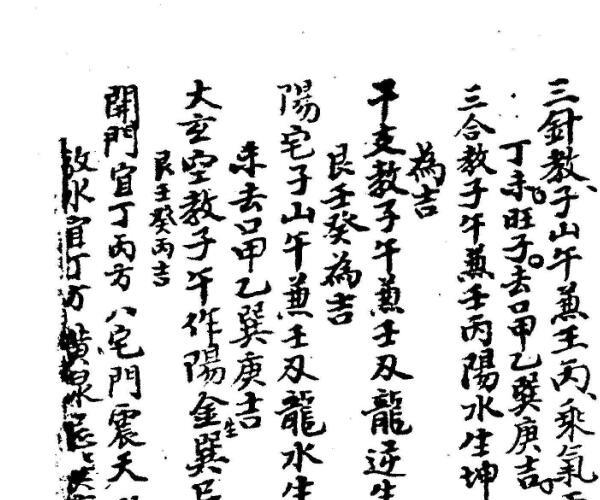 三針教子山午兼壬丙乘氣
丁未旺子去口甲乙巽庚吉
三合教子午兼壬丙陽水生坤
為吉
干支教子午兼壬及龍逆生
艮壬癸為吉
陽宅子山午兼壬及龍水生
未去口甲乙巽庚吉
大玄空教子午作陽金生巽
艮壬癸丙吉
開門宜丁丙方八宅門震天
放水宜丁方黃泉忌